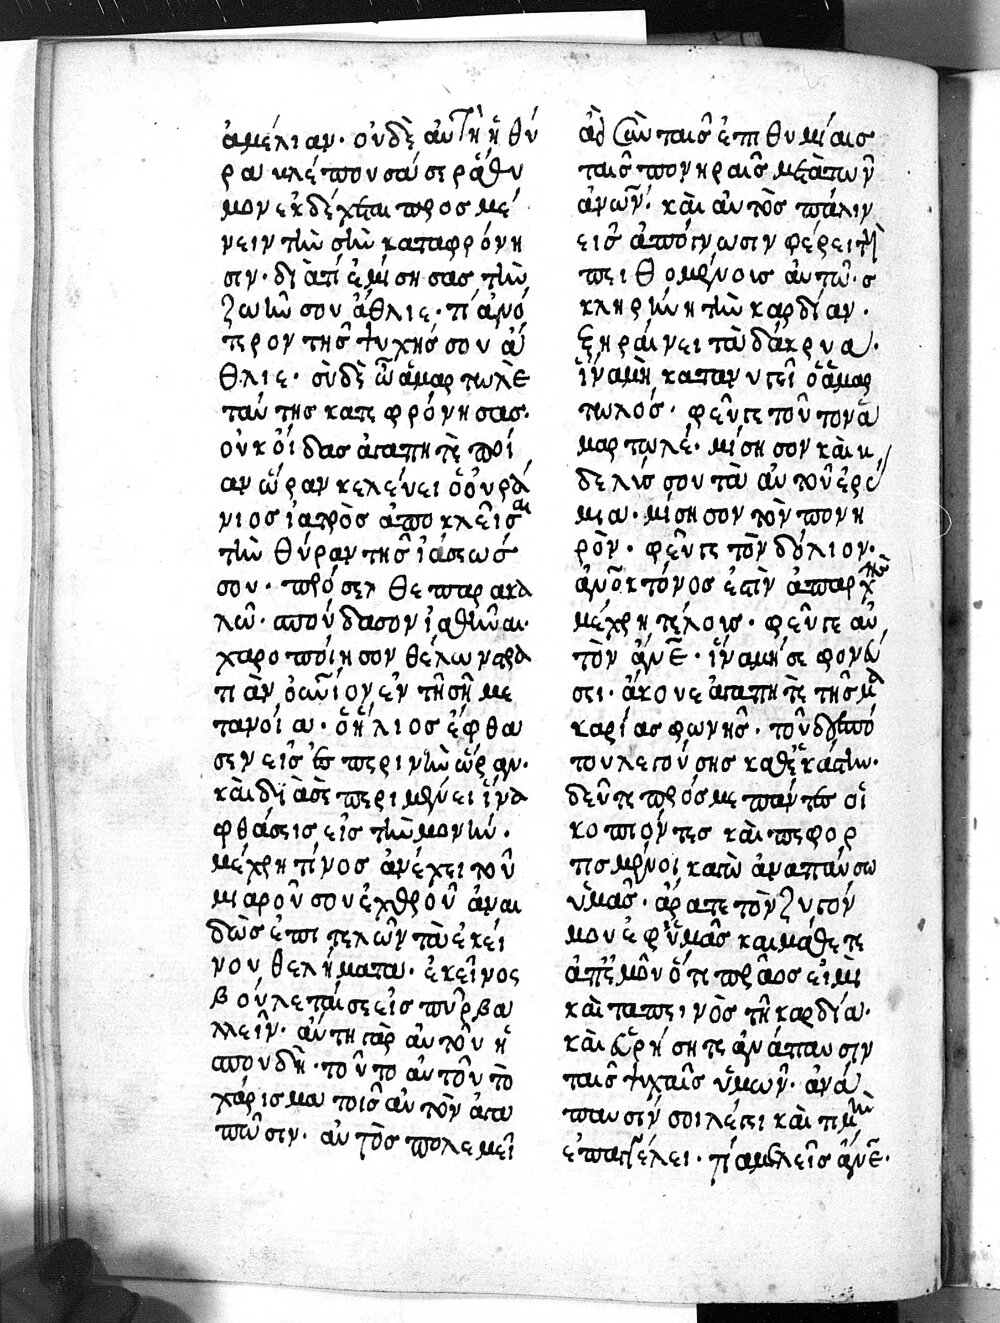 ἀμέλιαν· οὐδὲ αὐτὴ ἡ θύ
ρα κλέπτουσά σε ῥάθυ
μον ἐκδέχεται προσμέ
νειν τὴν σὴν καταφρόνη
σιν· διατί ἐμίσησας τὴν
ζωήν σου ἄθλιε· τί ἀνό
τερον τῆς ψυχῆς σου ἄ
θλιε· σὺ δὲ ὦ ἁμαρτωλὲ
ταύτης κατεφρόνησας·
οὐκ οἶδας ἀγαπητὲ ποί
αν ὥραν κελεύει ὁ οὐρά
νιος ἰατρὸς ἀποκλεῖσαι
τὴν θύραν τῆς ἰάσεώς
σου· πρόσελθε παρακα
λῶ· σπούδασον ἰαθῆναι·
χαροποίησον θέλων
τιᾶν οὐράνιον ἐν τῇ σῇ με
τανοία· ὁ ἥλιος ἔφθα
σεν εἰς ἑσπερινὴν ὥραν·
καὶ διὰ σὲ περιμένει ἵνα
φθάσεις εἰς τὴν μονήν·
μέχρη τίνος ἀνέχει τοῦ
μιαροῦ σου ἐχθροῦ ἀναι
δῶς ἐπιτελῶν τὰ ἐκεί
νου θελήματα· ἐκεῖνος
βούλεταί σε εἰς πῦρ βα
λλεῖν· αὐτη γὰρ αὐτοῦ ἡ
σπουδή· τοῦτο αὐτοῦ τὸ
χάρισμα τοῖς αὐτὸν ἀγα
πῶσιν· αὐτὸς πολεμεῖ
ἀεὶ σὺν ταῖς ἐπιθυμίαις
ταῖς πονηραῖς μετὰ τῶν
ἀνων· καὶ αὐτὸς πάλιν
εἰς ἀπόγνωσιν φέρει τῇ
πειθομένοις αὐτῶ· σ
κληρύνη τὴν καρδίαν·
ξηραίνει τὰ δάκρυα·
ἵνα μὴ κατανυγεῖ ὁ ἁμαρ
τωλός· φεῦγε τοῦτον ἁ
μαρτωλέ· μίσησον καὶ
βδελισσου τὰ αὐτοῦ ἔργα
μια· μίσησον τὸν πονη
ρὸν· φεῦγε τὸν δόλιον·
ἀνοκτόνος ἐστὶν ἀπαρχῆς
μέχρη τέλους· φεῦγε αὐ
τὸν ἄνε· ἵνα μή σε φονεύ
σει· ἄκουε ἀγαπητὲ τῆς μα
καρίας φωνῆς· τοῦ δεσπό
του λεγούσης καθεκάστην·
δεῦτε πρός με πάντες οἱ
κοπιόντες καὶ πεφορ
τισμένοι καγὼ ἀναπαύσω
ὑμᾶς· ἄρατε τὸν ζυγόν
μου ἐφ' ὑμᾶς καὶ μάθετε
ἀπ' ἐμοῦ ὅτι πρᾶος εἰμὶ
καὶ ταπεινὸς τῇ καρδία·
καὶ εὑρήσητε ἀνάπαυσιν
ταῖς ψυχαῖς ὑμῶν· ἀνά
παυσίν σοι λέγει καὶ τιμὴν
ἐπαγγέλει· τί ἀμελεῖς ἄνε·